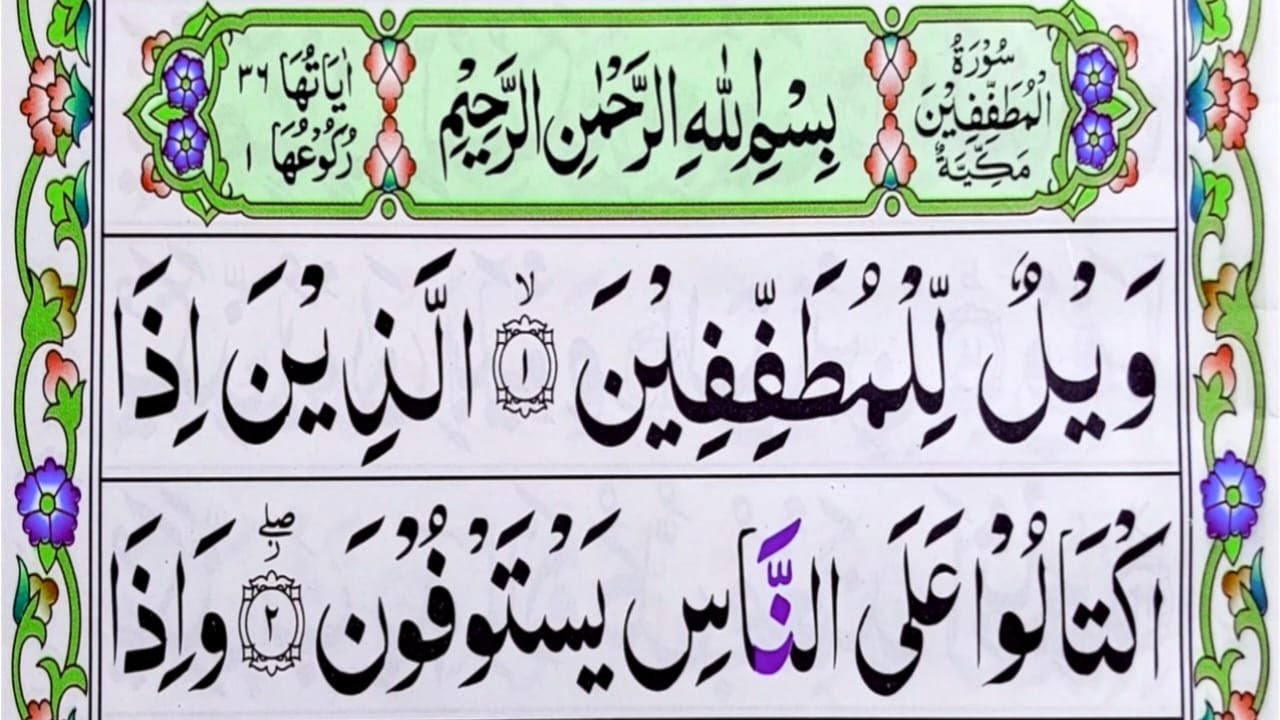 سُوْرَةُ
الْمُطَفِّفِيْنَ
مَكِّيَّةٌ
بِسْمِ اللّٰهِ الرَّحْمٰنِ الرَّحِيْمِ
اٰيَاتُهَا ٣٦
رُكُوْعُهَا ١
وَيْلٌ لِّلْمُطَفِّفِيْنَ ۙ﴿١﴾ الَّذِيْنَ اِذَا
اكْتَالُوْا عَلَى النَّاسِ يَسْتَوْفُوْنَ ۖ﴿٢﴾ وَاِذَا